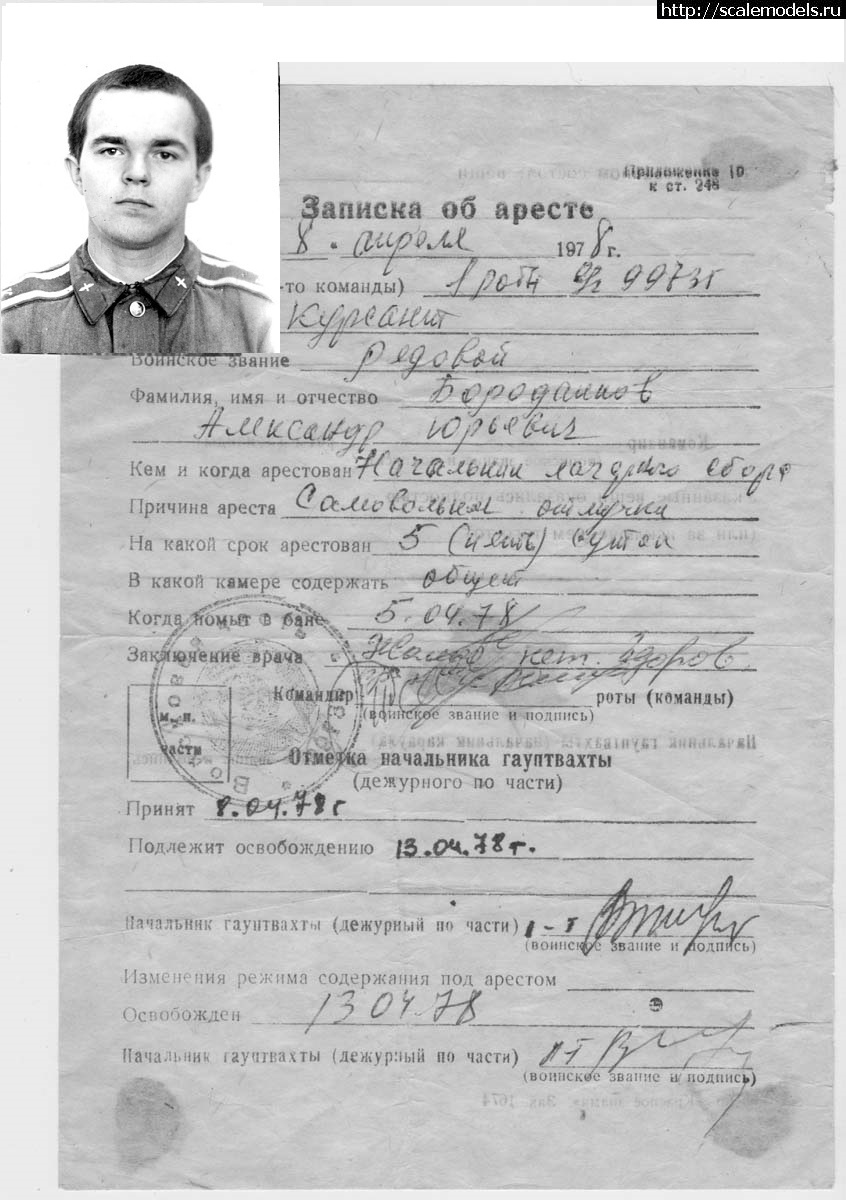 http://scalemodels.ru
Приложение 10
к ст. 248
Записка об аресте
8. апреля 1978 г.
-то команды) 1 роты в/ч 99731
Курсант
Воинское звание рядовой
Фамилия, имя и отчество
Александр Юрьевич
Кем и когда арестован Начальник сбора
Причина ареста Самовольная отлучка
На какой срок арестован 5 (пять) суток
В какой камере содержать общей
Когда помыт в бане 5.04.78
Заключение врача Жалоб нет. Здоров
Командир роты (команды)
(воинское звание и подпись)
м. п.
части
Отметка начальника гауптвахты
(дежурного по части)
Принят 8.04.78 г
Подлежит освобождению 13.04.78 г.
Начальник гауптвахты (дежурный по части)
(воинское звание и подпись)
Изменения режима содержания под арестом
Освобожден 13 04.78
Начальник гауптвахты (дежурный по части)
(воинское звание и подпись)